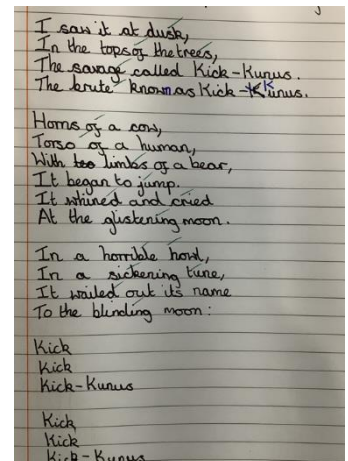 I saw it at dusk,
In the tops of the trees,
The savage called Kick-Kunus.
The brute known as Kick-Kunus.
Horns of a cow,
Torso of a human,
With limbs of a bear,
It began to jump.
It whined and cried
At the glistening moon.
In a horrible howl,
In a sickening tune,
It wailed out its name
To the blinding moon:
Kick
Kick
Kick-Kunus
Kick,
Kick
Kick-Kunus